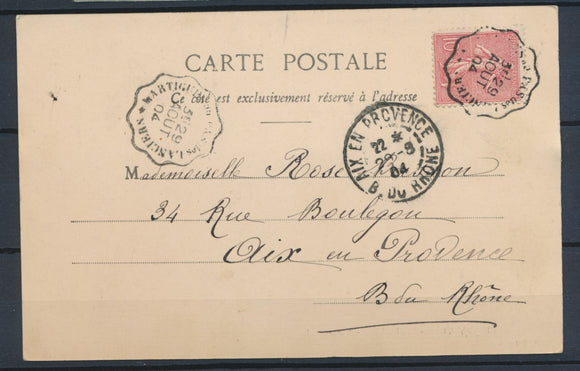 CARTE POSTALE
Ce côté est exclusivement réservé à l'adresse
10
3E 29
AOUT
04
MARTIGUES LANCIERS
3E 29
AOUT
04
AIX EN PROVENCE
22 *
29-8
04
B. DU RHÔNE
Mademoiselle Rose
34 Rue Boulegon
Aix en Provence
B du Rhône